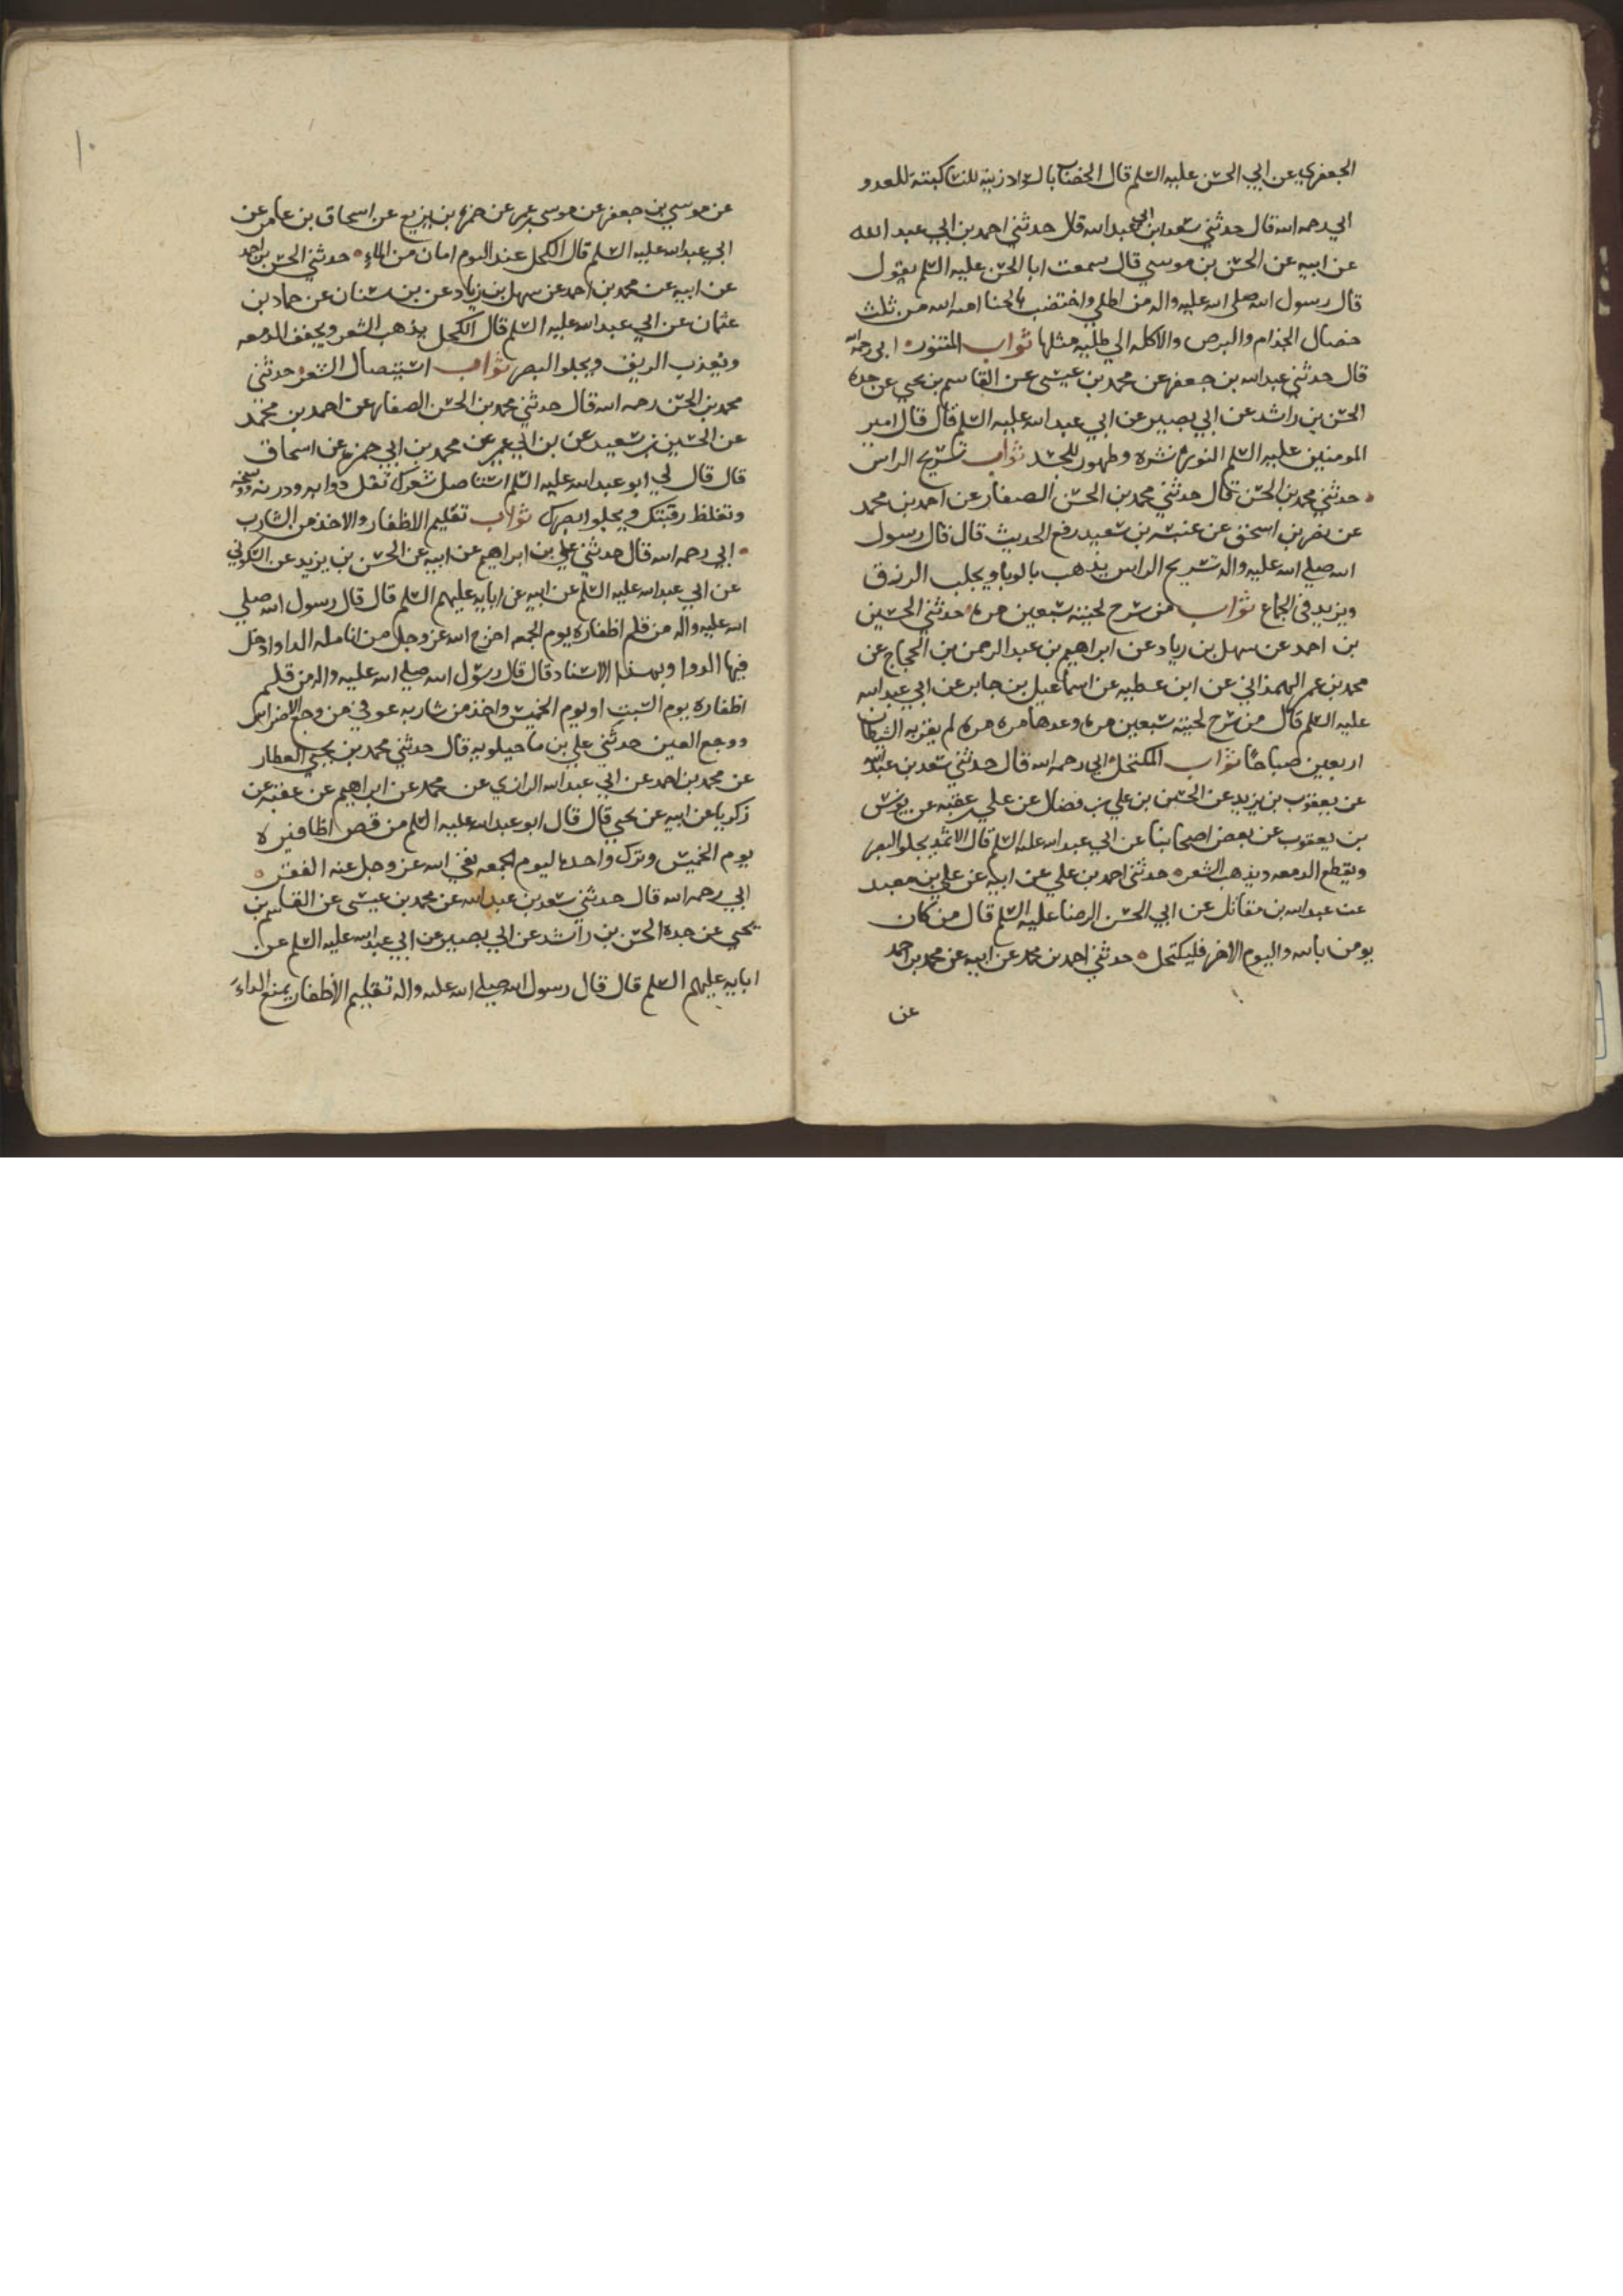 الجعفري عن ابي الحسن عليه السلم قال الخضاب بالسواد زينه للنسا كبته للعدو
ابي رحمه الله قال حدثني سعد ابن ابي عبد الله قال حدثني احمد بن ابي عبد الله
عن ابيه عن الحسن بن موسي قال سمعت ابا الحسن عليه السلم يقول
قال رسول الله صلى الله عليه واله من اطلي واختضب بالحنا امنه الله من ثلث
خصال الجذام والبرص والاكله الي طليه مثلها ثواب المتنور ابي رحمه الله
قال حدثني عبد الله بن جعفر عن محمد بن عيسى عن القاسم بن يحيي عن جده
الحسن بن راشد عن ابي بصير عن ابي عبد الله عليه السلم قال قال امير
المومنين عليه السلم النوره نشره وطهور للجسد ثواب تسريح الراس
حدثني محمد بن الحسن قال حدثني محمد بن الحسن الصفار عن احمد بن محمد
عن نضر بن اسحق عن عنبسه بن سعيد رفع الحديث قال قال رسول
الله صلي الله عليه واله تسريح الراس يذهب بالوبا ويجلب الرزق
ويزيد في الجماع ثواب من سرح لحيته سبعين مره حدثني الحسين
بن احمد عن سهل بن زياد عن ابراهيم بن عبد الرحمن بن الحجاج عن
محمد بن عمر الهمذاني عن ابن عطيه عن اسماعيل بن جابر عن ابي عبد الله
عليه السلم قال من سرح لحيته سبعين مره وعدها مره مره لم يقربه الشيطان
اربعين صباحا ثواب المكتحل ابي رحمه الله قال حدثني سعد بن عبد الله
عن يعقوب بن يزيد عن الحسن بن علي بن فضال عن علي بن عقبه عن يونس
بن يعقوب عن بعض اصحابنا عن ابي عبد الله عليه السلم قال الاثمد يجلو البصر
ويقطع الدمعه ويذهب الشعر حدثني احمد بن علي عن ابيه عن علي بن معبد
عن عبد الله بن مقاتل عن ابي الحسن الرضا عليه السلم قال من كان
يومن بالله واليوم الاخر فليكتحل حدثني احمد بن محمد عن ابيه عن محمد بن احمد
عن
١٠
عن موسي بن جعفر عن موسى بن عمر عن حمزه بن بزيع عن اسحاق بن عامر عن
ابي عبد الله عليه السلم قال الكحل عند النوم امان من الماء حدثني الحسن بن احمد
عن ابيه عن محمد بن احمد عن سهل بن زياد عن بن سنان عن حماد بن
عثمان عن ابي عبد الله عليه السلم قال الكحل يذهب الشعر ويجفف الدمعه
ويعذب الريف ويجلو البصر ثواب استيصال الشعر حدثني
محمد بن الحسن رحمه الله قال حدثني محمد بن الحسن الصفار عن احمد بن محمد
عن الحسين بن سعيد عن بن ابي عمير عن محمد بن ابي حمزه عن اسحاق
قال قال لي ابو عبد الله عليه السلم استاصل شعرك تقل دوابه ودرنه ووسخه
وتغلظ رقبتك ويجلوا بصرك ثواب تقليم الاظفار والاخذ من الشارب
ابي رحمه الله قال حدثني علي بن ابراهيم عن ابيه عن الحسن بن يزيد عن السكوني
عن ابي عبد الله عليه السلم عن ابيه عن ابايه عليهم السلم قال قال رسول الله صلي
الله عليه واله من قلم اظفاره يوم الجمعه اخرج الله عز وجل من انامله الدا وادخل
فيها الدوا وبهذا الاسناد قال قال رسول الله صلي الله عليه واله من قلم
اظفاره يوم السبت او يوم الخميس واخذ من شاربه عوفي من وجع الاضراس
ووجع العين حدثني علي بن ماجيلويه قال حدثني محمد بن يحيي العطار
عن محمد بن احمد عن ابي عبد الله الرازي عن محمد عن ابراهيم عن عقبه عن
زكريا عن ابيه عن يحيي قال قال ابو عبد الله عليه السلم من قص اظافيره
يوم الخميس وترك واحده ليوم الجمعه نفي الله عز وجل عنه الفقر
ابي رحمه الله قال حدثني سعد بن عبد الله عن محمد بن عيسى عن القاسم بن
يحيي عن جده الحسن بن راشد عن ابي بصير عن ابي عبد الله عليه السلم عن
ابايه عليهم السلم قال قال رسول الله صلي الله عليه واله تقليم الاظفار يمنع الداء